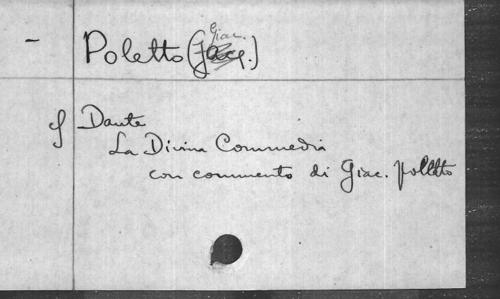 - Poletto (Giac.)
f Dante
La Divina Commedia
con commento di Giac. Poletto